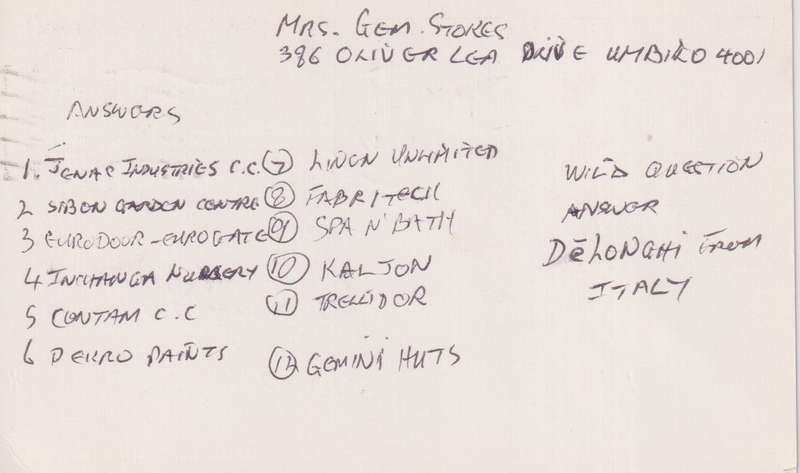 MRS. GEM. STOKES
386 OLIVER LEA DRIVE UMBILO 4001
ANSWERS
1. JENAC INDUSTRIES C.C.
2 SIBEN GARDEN CENTRE
3 EURODOOR-EUROGATE
4 INCHANGA NURSERY
5 CONTAM C.C
6 DEKRO PAINTS
7 LINEN UNLIMITED
8 FABRITECH
09 SPA N' BATH
10 KALJON
11 TRELLIDOR
12 GEMINI HUTS
WILD QUESTION
ANSWER
DéLONGHI FROM
ITALY